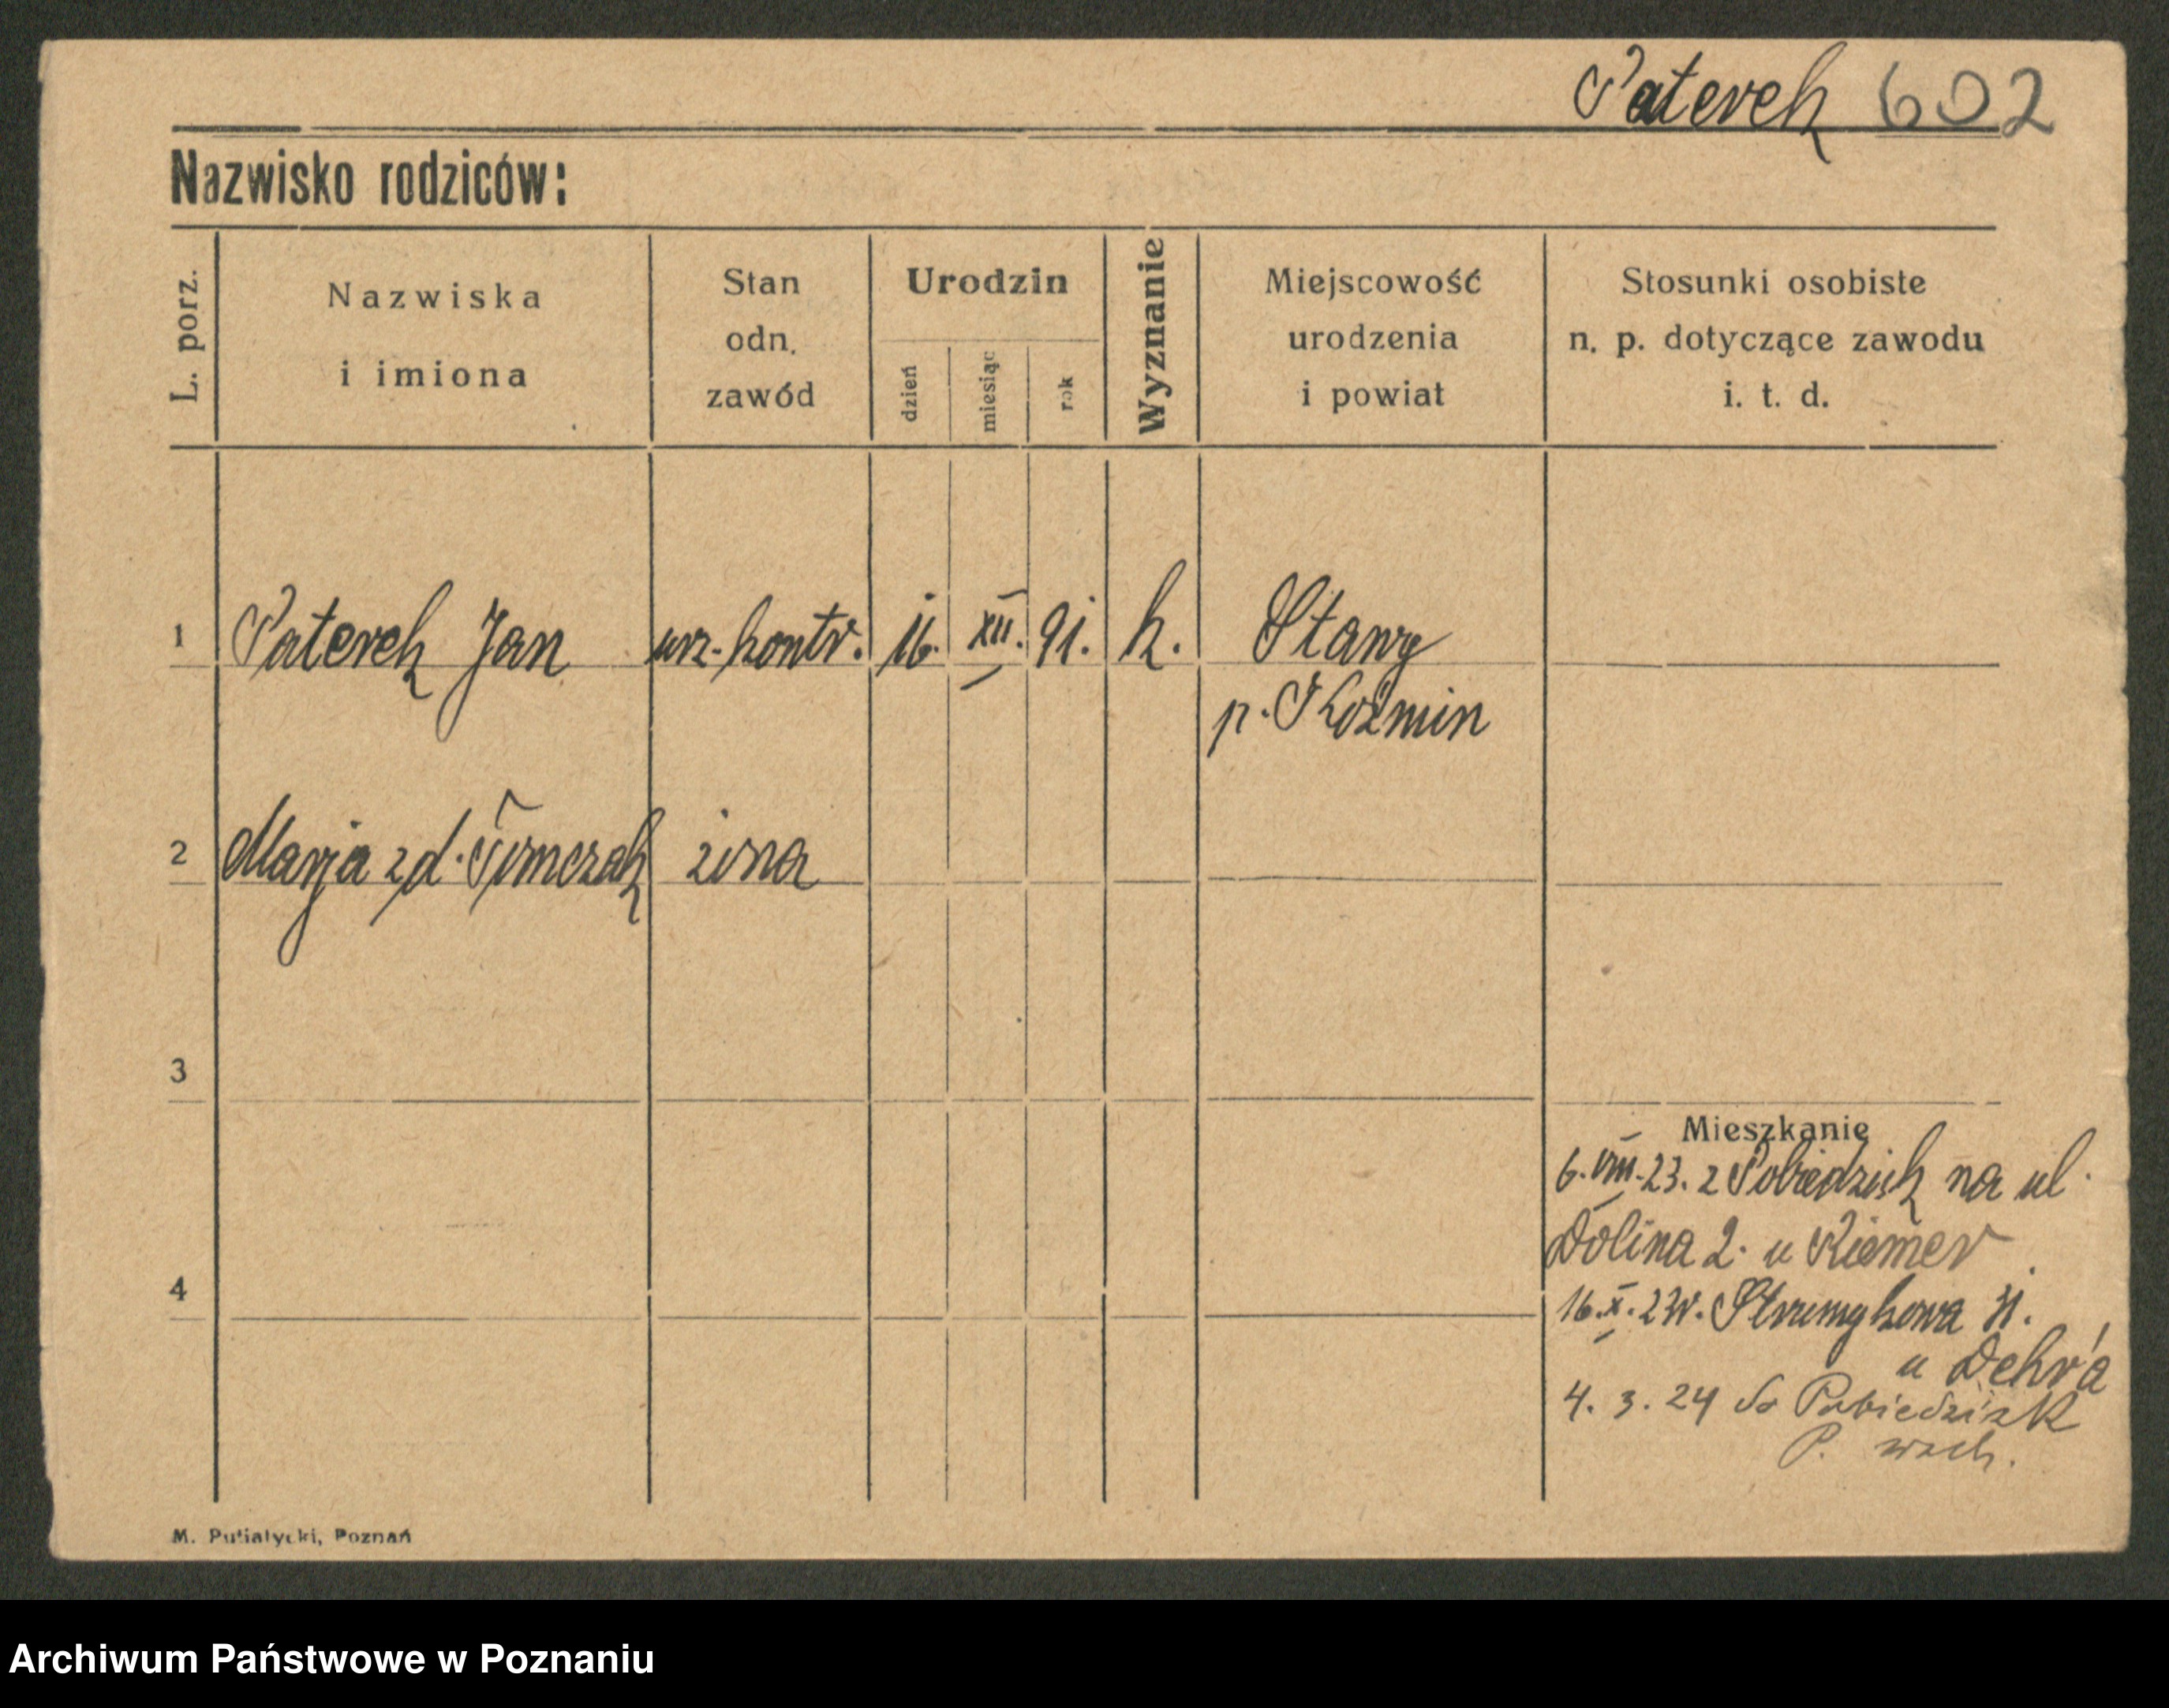 Paterek 602
Nazwisko rodziców:
L. porz.
Nazwiska
i imiona
Stan
odn.
zawód
Urodzin
dzień
miesiąc
rok
Wyznanie
Miejscowość
urodzenia
i powiat
Stosunki osobiste
n. p. dotyczące zawodu
i. t. d.
1 Paterek Jan urz. kontr. 16. XII. 91. k. Stawy
p. Koźmin
2 Marja zd. żona
3
Mieszkanie
6. VIII. 23. z Pobiedzisk na ul.
Dolina 2. u
4
16. X. 23 Strumykowa
u
4. 3. 24 do Pobiedzisk
P. wach.
M. Putiatycki, Poznań
Archiwum Państwowe w Poznaniu